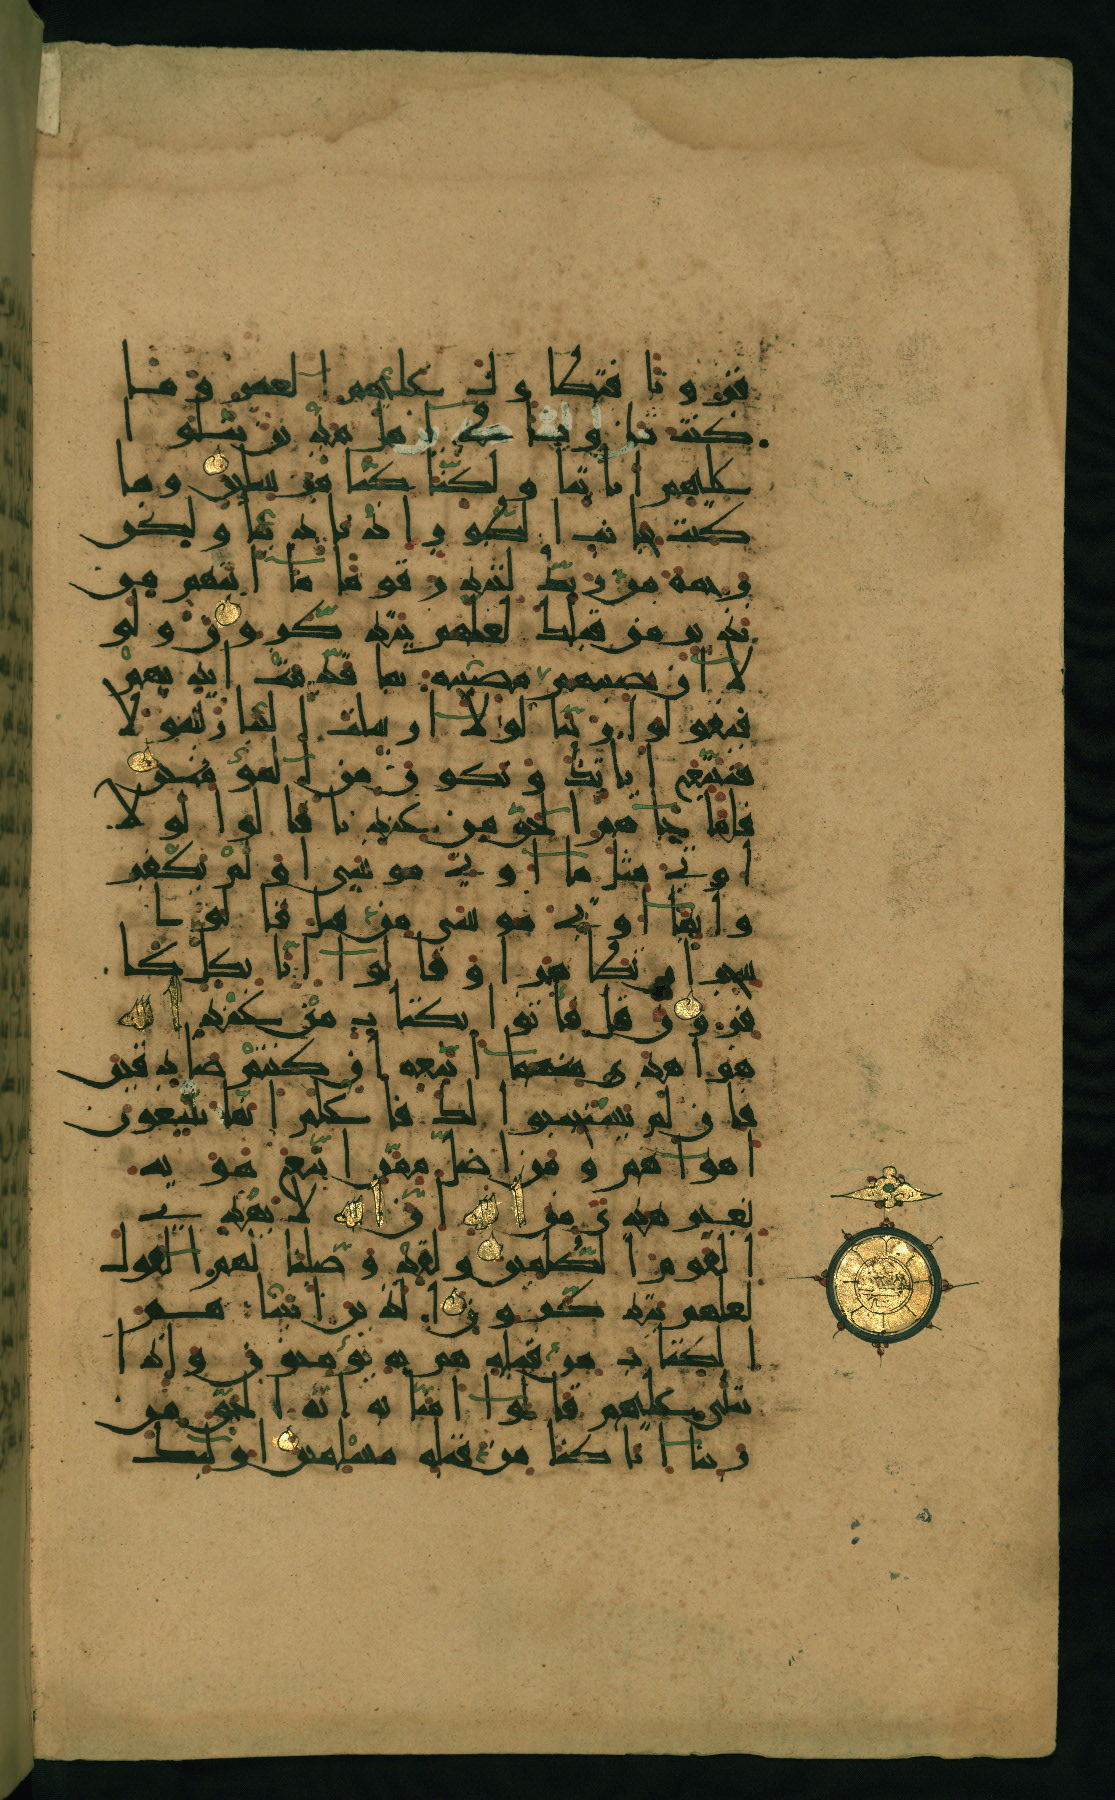 قرونا فتطاول عليهم العمر وما
كنت ثاويا في اهل مدين تتلوا
عليهم اياتنا ولكنا كنا مرسلين وما
كنت بجانب الطور اذ نادينا ولكن
رحمة من ربك لتنذر قوما ما اتيهم من
نذير من قبلك لعلهم يتذكرون ولو
لا ان تصيبهم مصيبة بما قدمت ايديهم
فيقولوا ربنا لولا ارسلت الينا رسولا
فنتبع اياتك ونكون من المؤمنين
فلما جاهم الحق من عندنا قالوا لولا
اوتي مثل ما اوتي موسى اولم يكفر
وا بما اوتي موسى من قبل قالوا
سحران تظاهرا وقالوا انا بكل كا
فرون قل فاتوا بكتاب من عند الله
هو اهدى منهما اتبعه ان كنتم صادقين
فان لم يستجيبوا لك فاعلم انما يتبعون
اهواهم ومن اضل ممن اتبع هويه
بغير هدى من الله ان الله لا يهدي
القوم الظلمين ولقد وصلنا لهم القول
لعلهم يتذكرون الذين اتينا هم
الكتاب من قبله هم به يؤمنون واذا
يتلى عليهم قالوا امنا به انه الحق من
ربنا انا كنا من قبله مسلمين اولئك